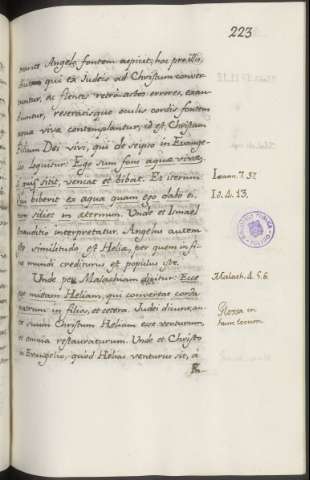 223
monet Angelo fontem aspicit; hoc præ illo,
qui ex Judeis ad Christum conver
tuntur, ac flentes retro actos errores, exau
diuntur, reseratisque oculis cordis fontem
aquæ vivæ contemplantur, id est, Christum
filium Dei vivi, qui de seipso in Evange
lio loquitur: Ego sum fons aquæ vivæ,
si quis sitit, veniat et bibat. Et iterum:
Qui biberit ex aqua quam ego dabo ei,
non sitiet in æternum. Unde et Ismael
exauditio interpretatur. Angelus autem
similitudo est Heliæ, per quem in fi
ne mundi crediturus est populus iste.
Unde per Malachiam dicitur: Ecce
ego mittam Heliam, qui convertat corda
patrum in filios, et cetera. Judei dicunt, an
te suum Christum Heliam esse venturum,
et omnia restauraturum. Unde et Christo
in Evangelio, quod Helias venturus sit, à
Joann. 7. 37
Id. 4. 13.
Malach. 4. 5. 6.
Glossa in
hunc locum
BIBLIOTECA PUBLICA
TOLEDO